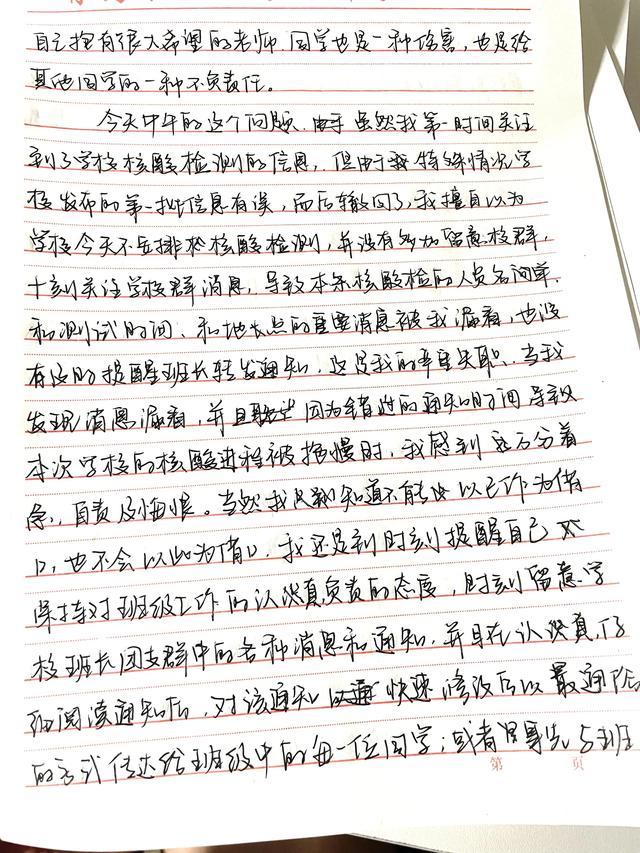 自己抱有很大希望的老师、同学也是一种伤害，也是给
其他同学的一种不负责任。
今天中午的这个问题，由于虽然我第一时间关注
到了学校核酸检测的信息，但由于我特殊情况学
校发布的第一批信息有误，而后撤回了，我擅自以为
学校今天不安排核酸检测，并没有多加留意校群，
时刻关注学校群消息，导致本条核酸检的人员名间单
和测试时间、和地点的重要消息被我漏看，也没
有及时提醒班长转发通知，这是我的严重失职。当我
发现消息漏看，并且因为错过的通知时间导致
本次学校的核酸进程被拖慢时，我感到万分着
急，自责及悔恨。当然我知道不能以已作为借
口，也不会以此为借口，我还是到时刻提醒自己
保持对班级工作的认真负责的态度，时刻留意学
校班长团支群中的各种消息和通知，并且在认真仔
细阅读通知后，对该通知快速修改后以最通俗
的方式传达给班级中的每一位同学；或者事先与班
第 页